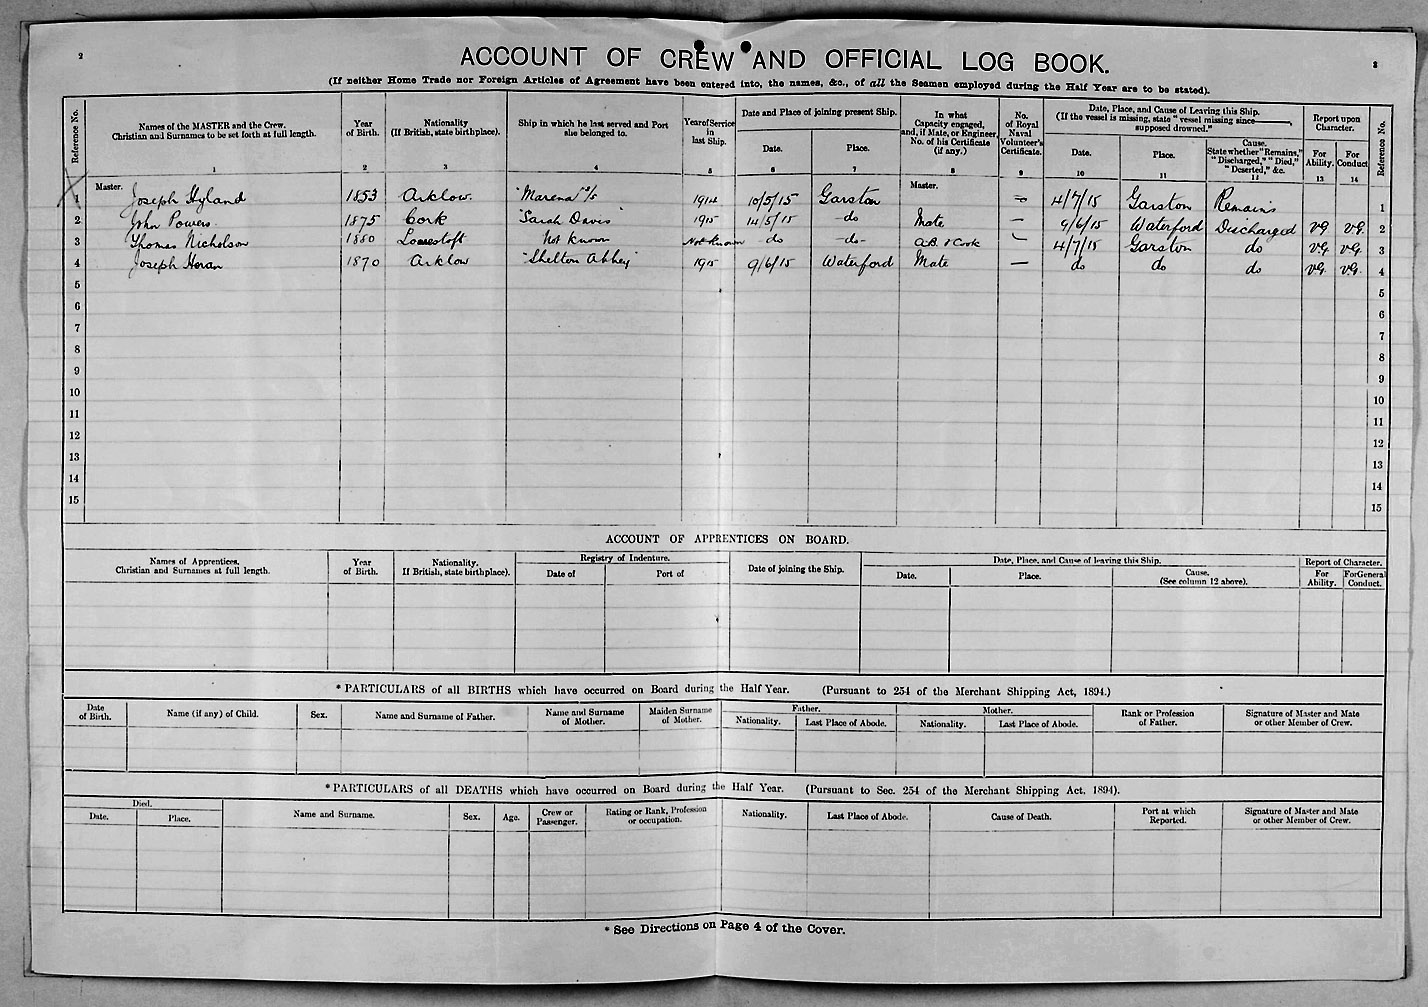 2
ACCOUNT OF CREW AND OFFICIAL LOG BOOK.
3
(If neither Home Trade nor Foreign Articles of Agreement have been entered into, the names, &c., of all the Seamen employed during the Half Year are to be stated).
Reference No. Names of the MASTER and the Crew. Christian and Surnames to be set forth at full length. Year of Birth. Nationality (If British, state birthplace). Ship in which he last served and Port she belonged to. Year of Service in last Ship. Date and Place of joining present Ship. Date. Place. In what Capacity engaged, and, if Mate, or Engineer, No. of his Certificate (if any.) No. of Royal Naval Volunteer's Certificate. Date, Place, and Cause of Leaving this Ship. (If the vessel is missing, state "vessel missing since ———, supposed drowned." Date. Place. Cause. State whether "Remains," "Discharged," "Died," "Deserted," &c. Report upon Character. For Ability. For Conduct Reference No.
1 2 3 4 5 6 7 8 9 10 11 12 13 14
1 Master. Joseph Hyland 1853 Arklow. "Marena" s/s 1914 10/5/15 Garston Master. — 4/7/15 Garston Remains 1
2 John Powers 1875 Cork "Sarah Davis" 1915 14/5/15 -do Mate — 9/6/15 Waterford Discharged VG VG. 2
3 Thomas Nicholson 1880 Lowestoft Not Known Not Known do -do- A.B. & Cook — 4/7/15 Garston do VG. VG. 3
4 Joseph Horan 1870 Arklow "Shelton Abbey" 1915 9/6/15 Waterford Mate — do do do VG. VG. 4
5 5
6 6
7 7
8 8
9 9
10 10
11 11
12 12
13 13
14 14
15 15
ACCOUNT OF APPRENTICES ON BOARD.
Names of Apprentices. Christian and Surnames at full length. Year of Birth. Nationality. If British, state birthplace). Registry of Indenture. Date of Port of Date of joining the Ship. Date, Place, and Cause of leaving this Ship. Date. Place. Cause. (See column 12 above). Report of Character. For Ability. For General Conduct.
* PARTICULARS of all BIRTHS which have occurred on Board during the Half Year. (Pursuant to 254 of the Merchant Shipping Act, 1894.)
Date of Birth. Name (if any) of Child. Sex. Name and Surname of Father. Name and Surname of Mother. Maiden Surname of Mother. Father. Nationality. Last Place of Abode. Mother. Nationality. Last Place of Abode. Rank or Profession of Father. Signature of Master and Mate or other Member of Crew.
* PARTICULARS of all DEATHS which have occurred on Board during the Half Year. (Pursuant to Sec. 254 of the Merchant Shipping Act. 1894).
Died. Date. Place. Name and Surname. Sex. Age. Crew or Passenger. Rating or Rank, Profession or occupation. Nationality. Last Place of Abode. Cause of Death. Port at which Reported. Signature of Master and Mate or other Member of Crew.
* See Directions on Page 4 of the Cover.